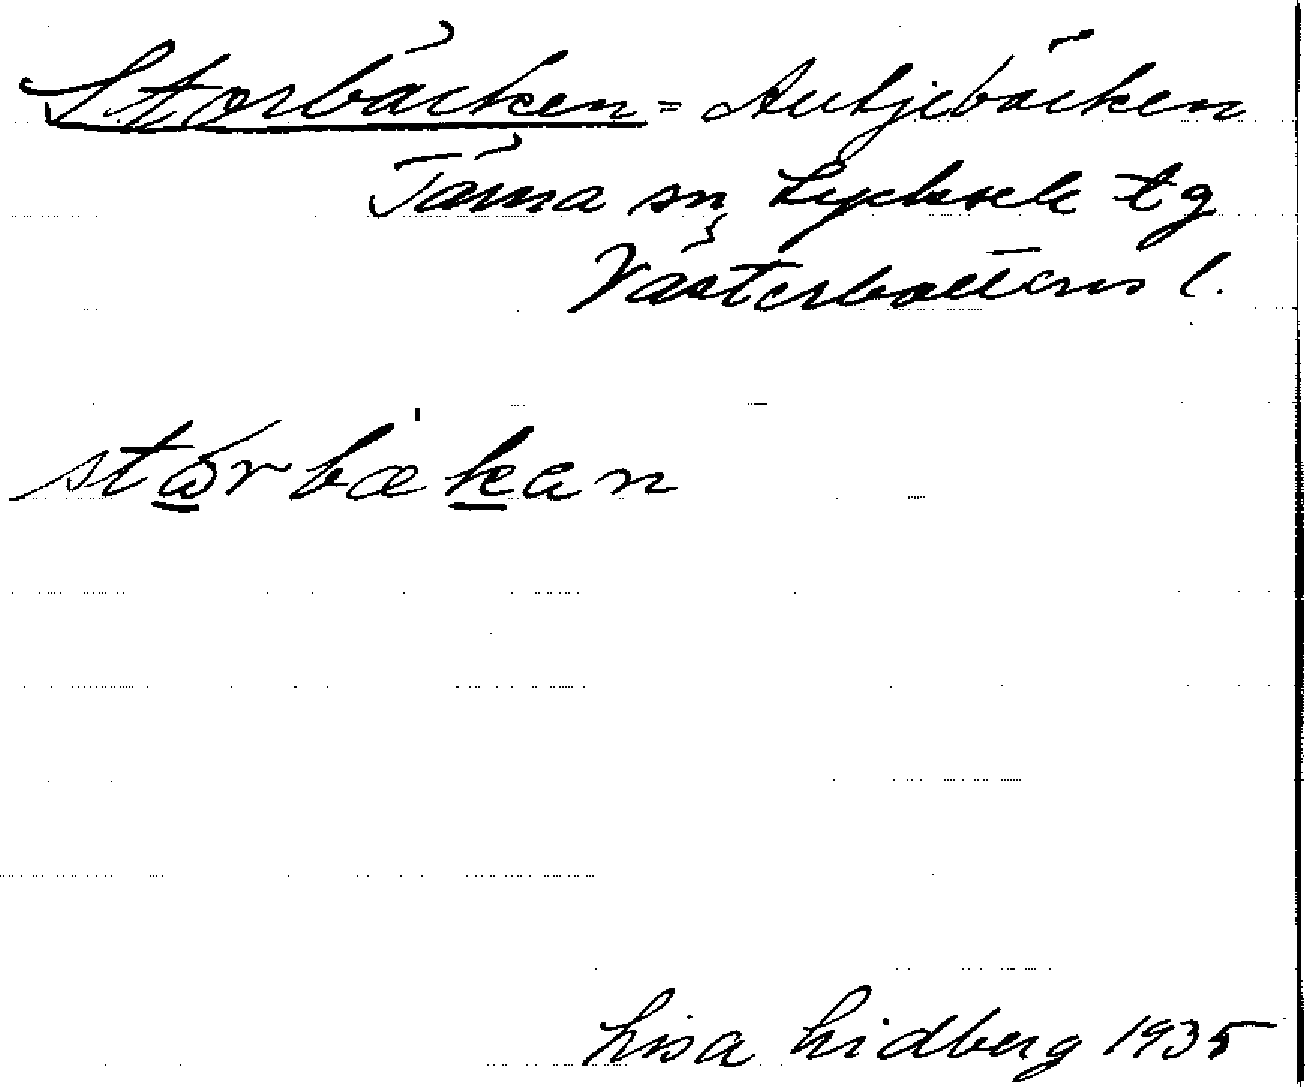 Storbäcken = Autjebäcken
Tärna sn Lycksele tg
Västerbottens l.
stårbækan
Lisa Lidberg 1935